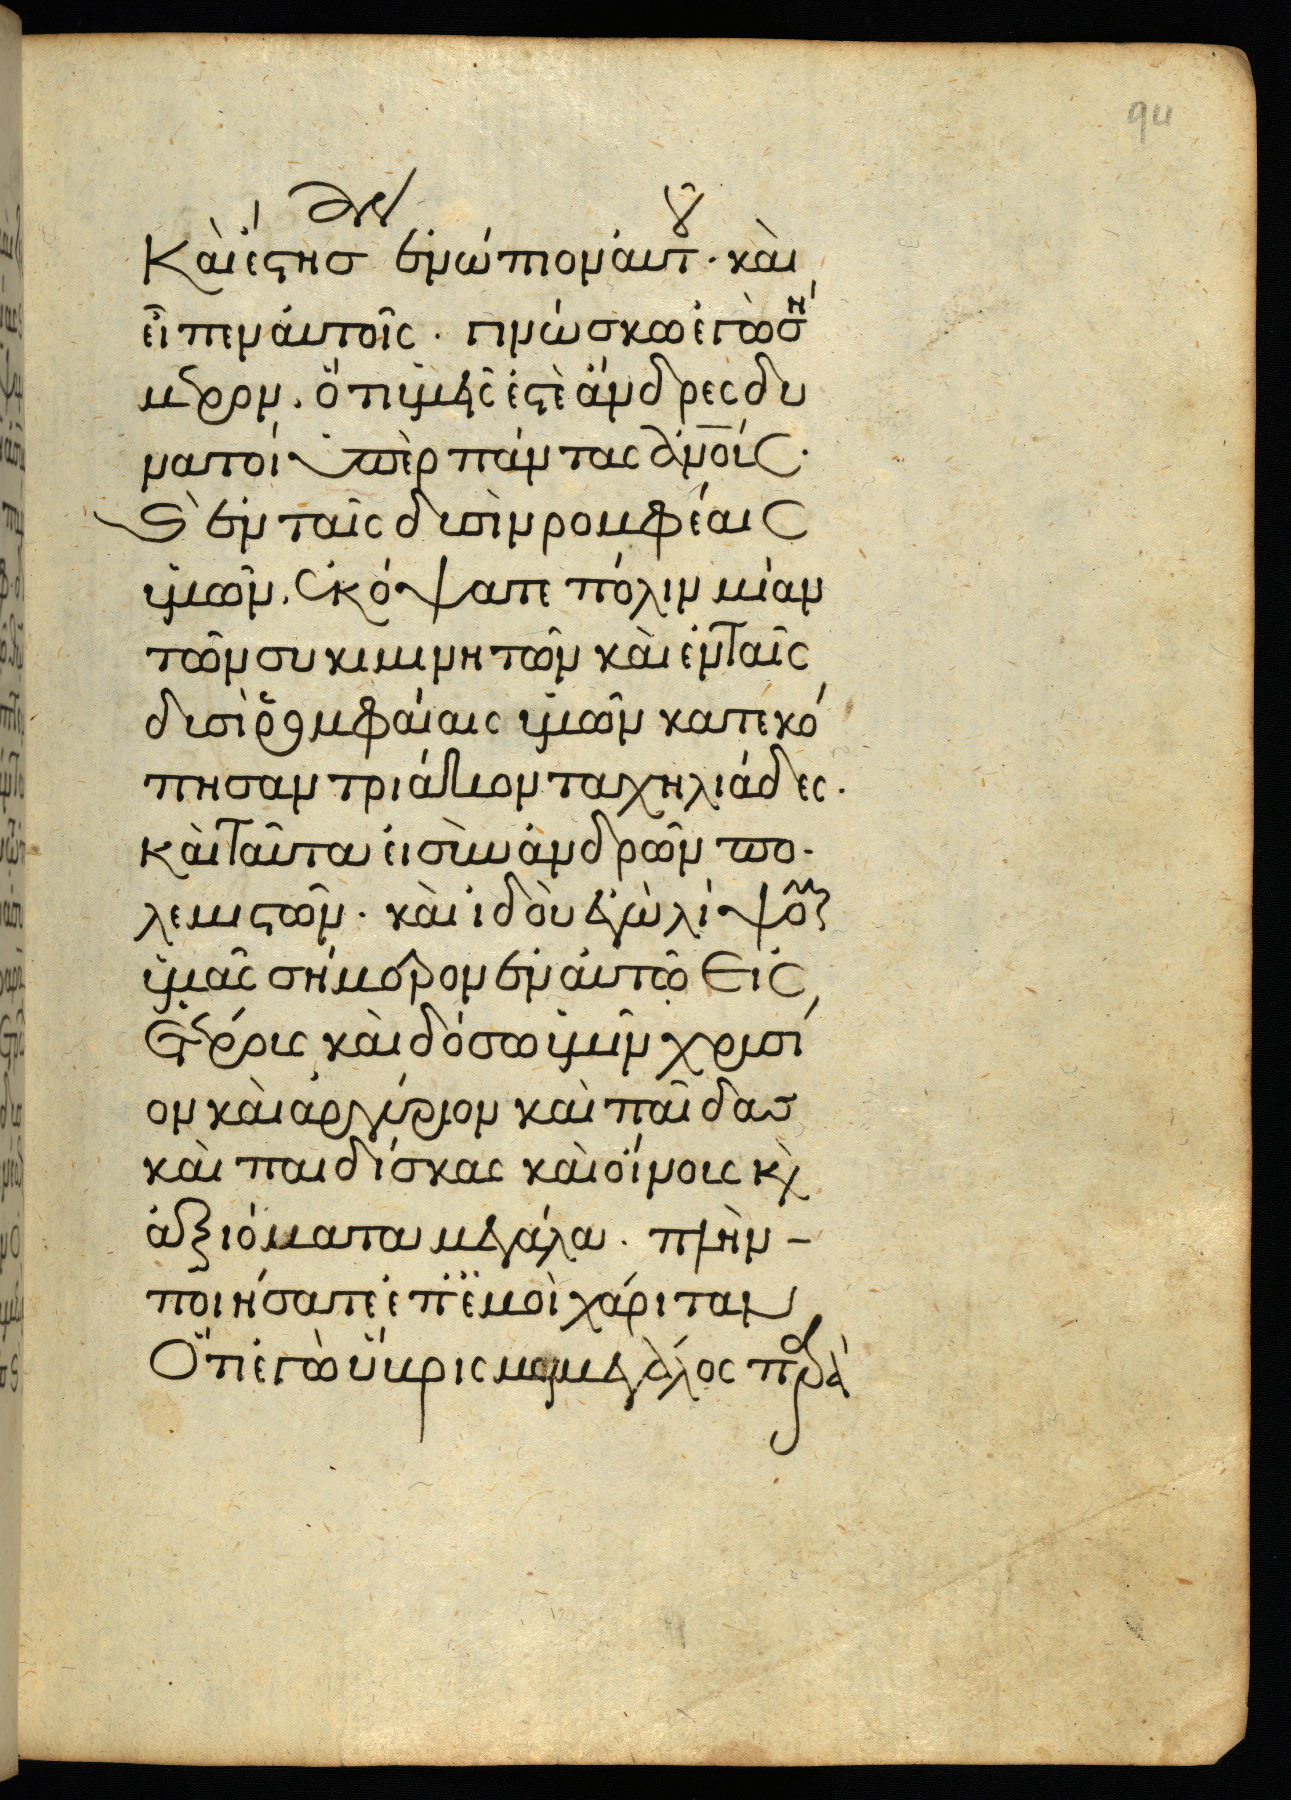 94
Καὶ ἔστησαν ἐνώπιον αὐτοῦ · καὶ
εἶπεν αὐτοῖς · γινώσκω ἐγὼ σή
μερον. ὅτι ὑμεῖς ἐστὲ ἄνδρες δυ
νατοί ὑπὲρ πάντας
ἐν ταῖς δυσὶν ρομφέαις
ὑμῶν. ἐκόψατε πόλιν μίαν
τῶν συκιμητῶν καὶ ἐν ταῖς
δυσὶ ῥομφαίαις ὑμῶν κατεκό
πησαν τριάκοντα χηλιάδες.
καὶ ταῦτα εἰσὶν ἀνδρῶν πο-
λεμιστῶν · καὶ ἰδοὺ ἐγὼ λίψομαι
ὑμᾶς σήμερον ἐν αὐτῶ εἰς
καὶ δόσω ὑμῖν χρυσί
ον καὶ ἀργύριον καὶ παῖδας
καὶ παιδίσκας καὶ οἴνους καὶ
ἀξιόματα μεγάλα · πλὴν -
ποιήσατε ἐπ' ἐμοὶ χάριταν
Ὅτι ἐγὼ ὕκρισμαι μεγάλος παρὰ